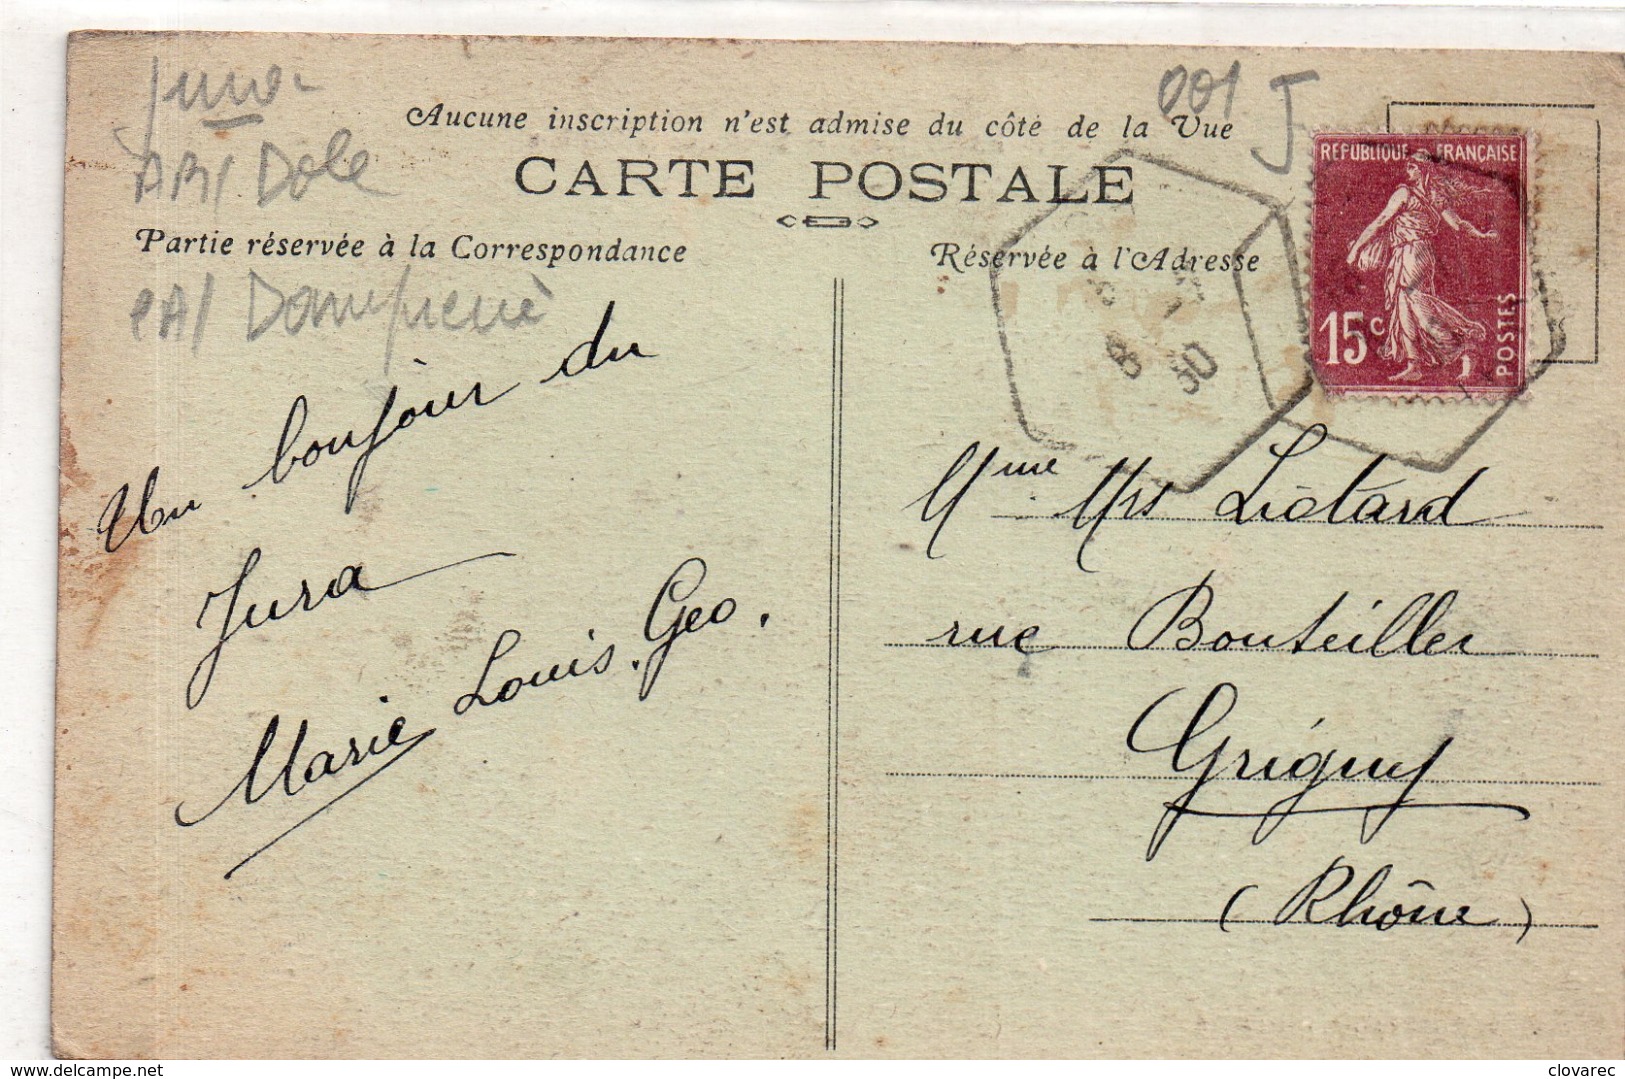 Jura
001 J
Aucune inscription n'est admise du côté de la Vue
Dole
CARTE POSTALE
Partie réservée à la Correspondance
Réservée à l'Adresse
REPUBLIQUE FRANÇAISE
15c
POSTES
8
30
Un bonjour du
Jura
Marie Louis. Geo.
Mme Liotard
rue Bouteiller
Grigny
(Rhône)
delcampe.net
clovarec